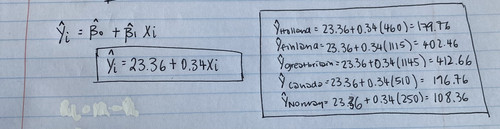 Ŷi = β̂0 + β̂1 Xi
Ŷi = 23.36 + 0.34Xi
ŶHolland = 23.36 + 0.34(460) = 179.76
ŶFinland = 23.36 + 0.34(1115) = 402.46
Ŷgreatbritain = 23.36 + 0.34(1145) = 412.66
Ŷcanada = 23.36 + 0.34(510) = 196.76
ŶNorway = 23.36 + 0.34(250) = 108.36